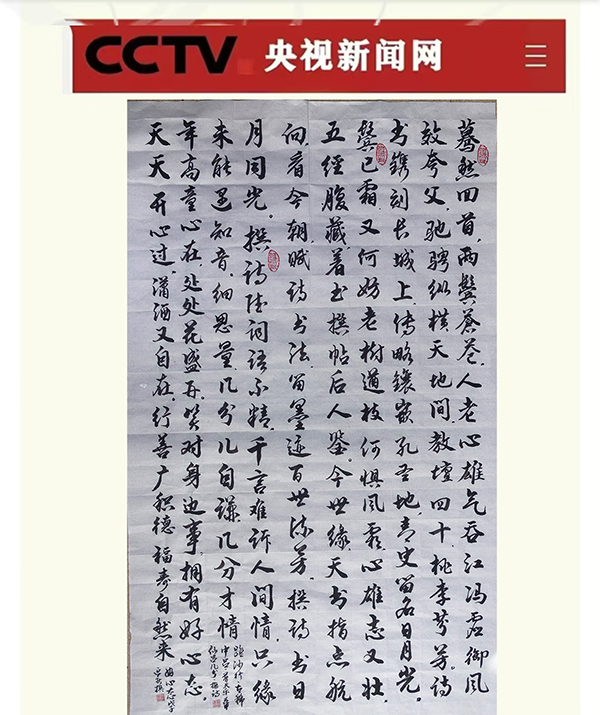 CCTV 央视新闻网
蓦然回首，两鬓苍苍。人老心雄气吞江冯虚御风
效夸父，驰骋纵横天地间，教坛四十，桃李芳，诗
书镌刻长城上，传略镶嵌孔圣地，青史留名日月光。
鬓已霜，又何妨，老树道枝何惧风霜，心雄志又壮，
五经腹藏着书撰帖后人鉴。今世缘，天书指点航
向，看今朝，赋诗书法，留墨迹百世流芳。撰诗书日
月同光。撰诗陆词语不精，千言难诉人间情，只缘
未能遇知音，细思量几分儿自谦几分才情
年高童心在，处处花盛开，笑对身边事，拥有好心态。
天天开心过，潇洒又自在，行善广积德，福寿自然来